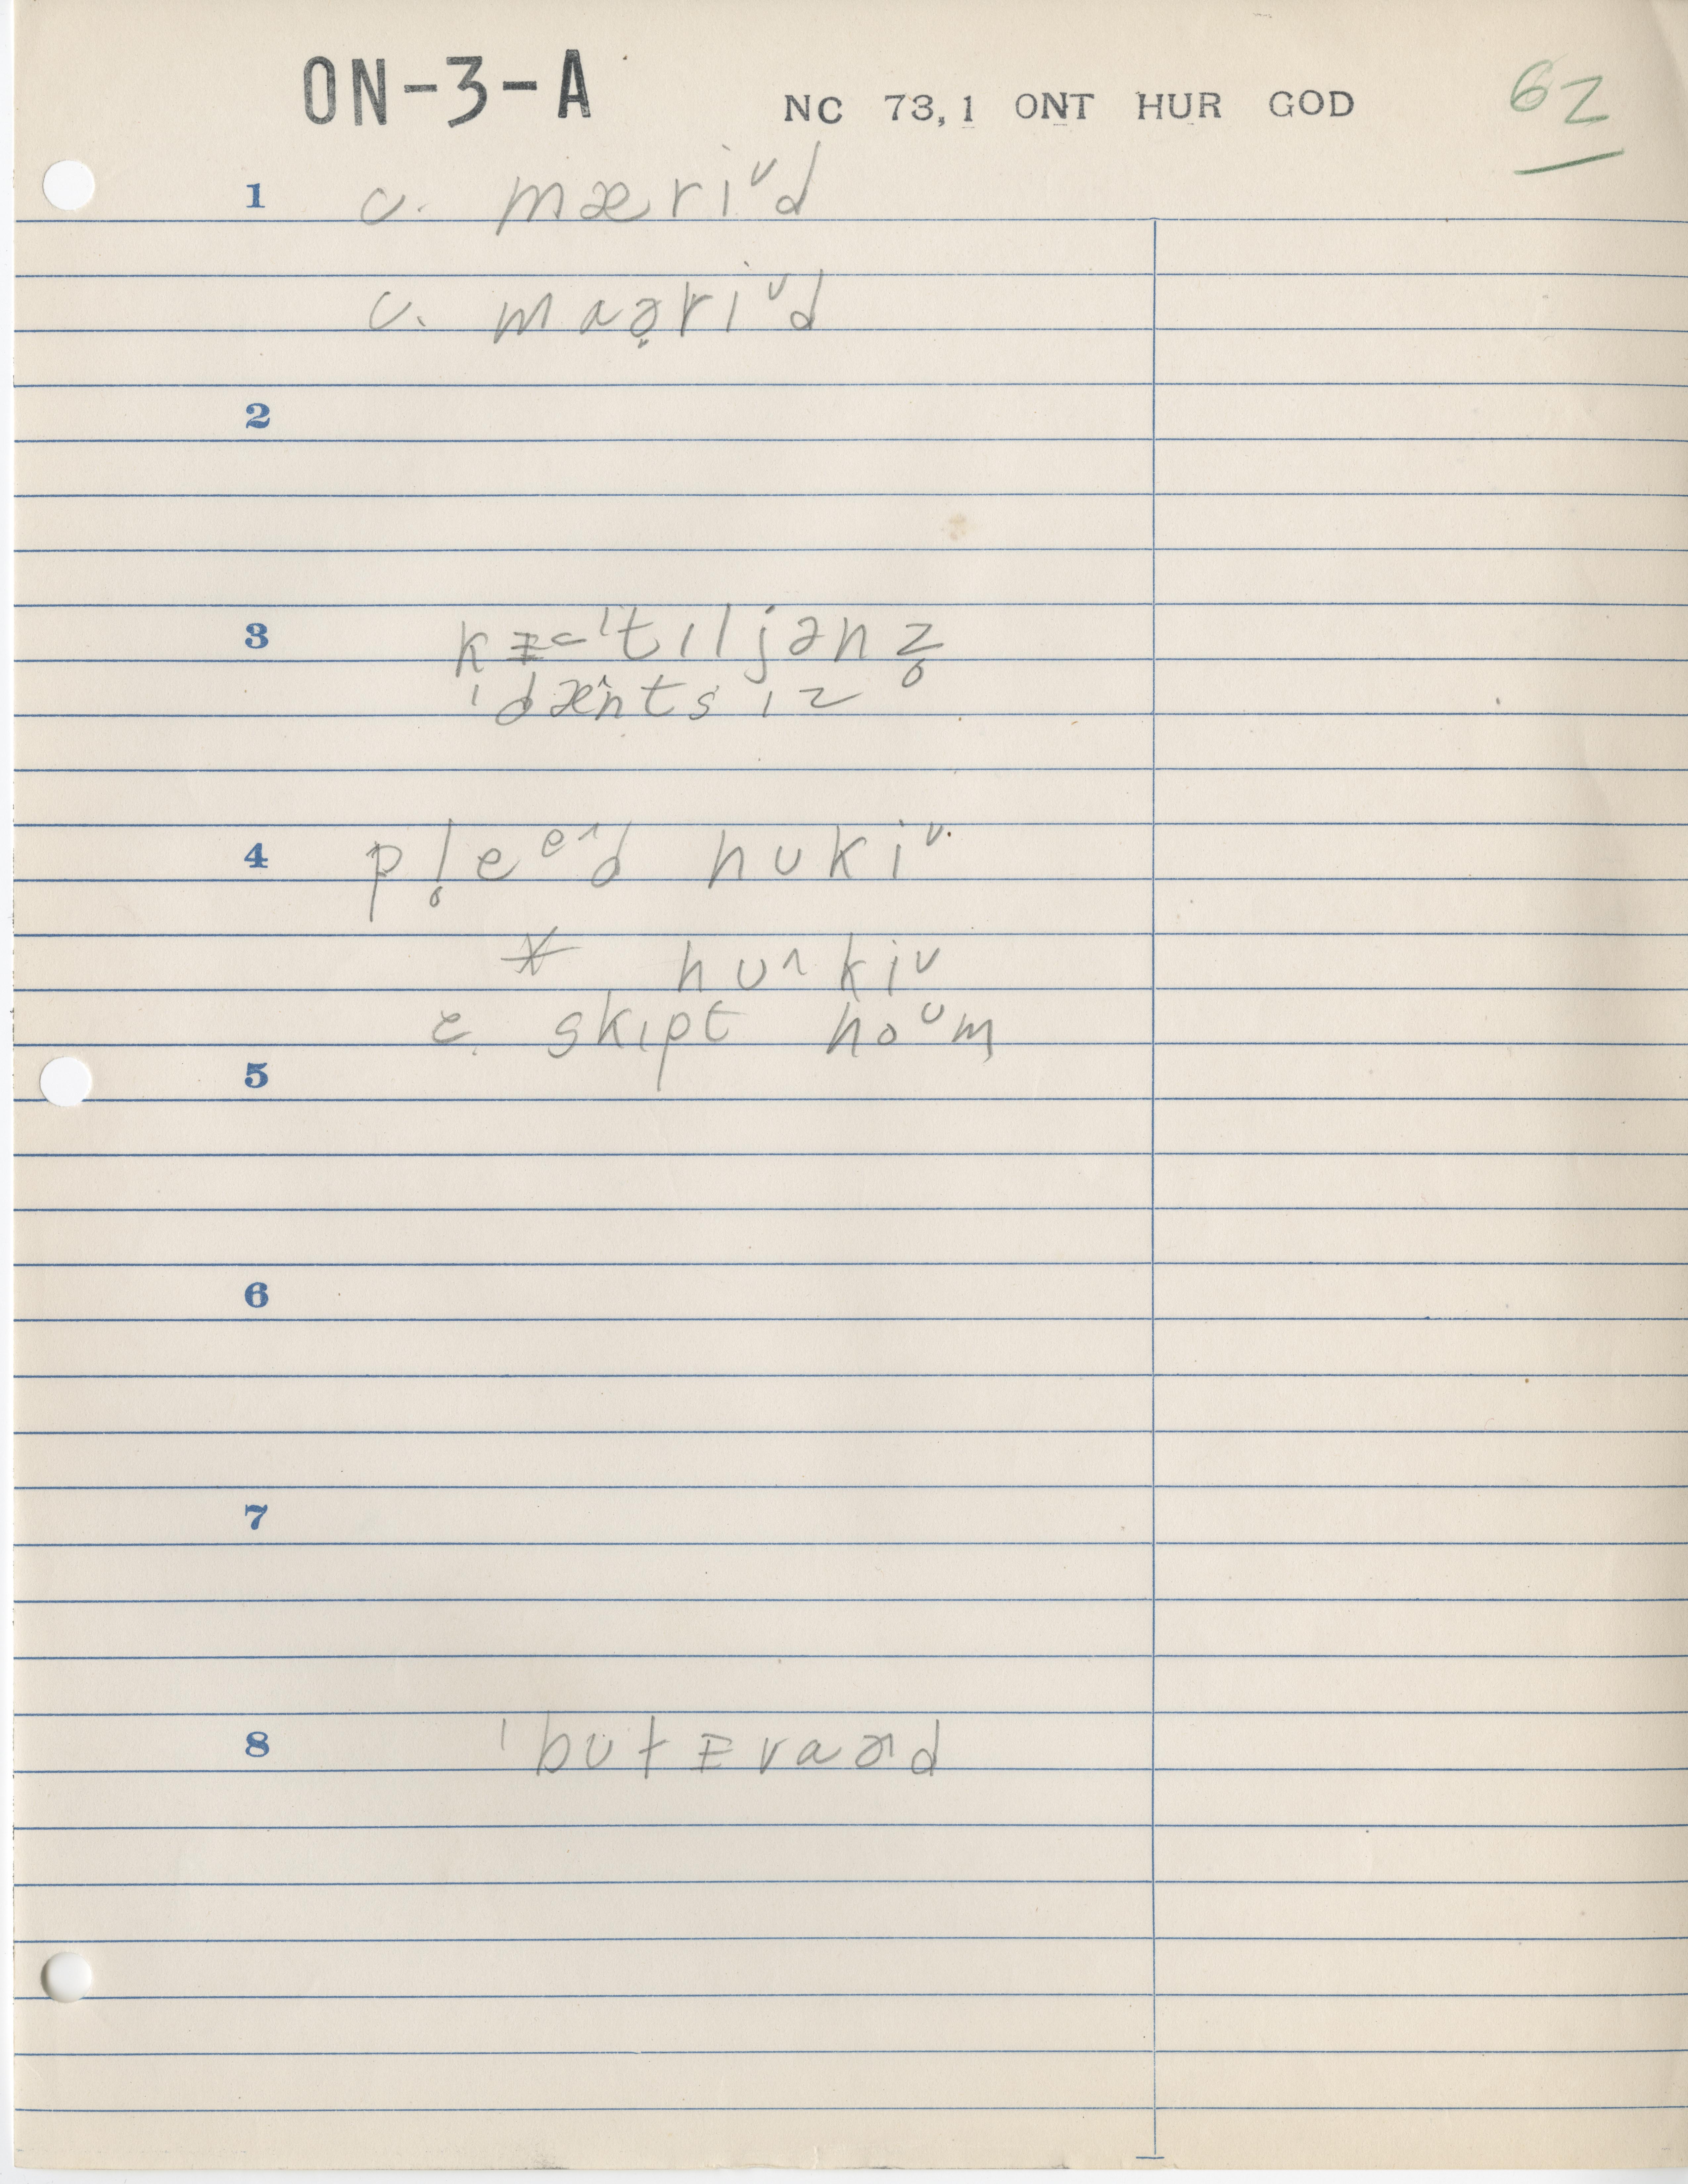 ON-3-A NC 73,1 ONT HUR GOD 62
1 c. mæriᵛd
c. maə̬riᵛd
2
3 kɪ<ˈtɪljənz̥
ˈdæ^nts ɪz
4 pl̥eᵉ^d hukiᵛ.
* hu^kiᵛ
c. skɪpt hoᵁm
5
6
7
8 ˈbutɪraə^d